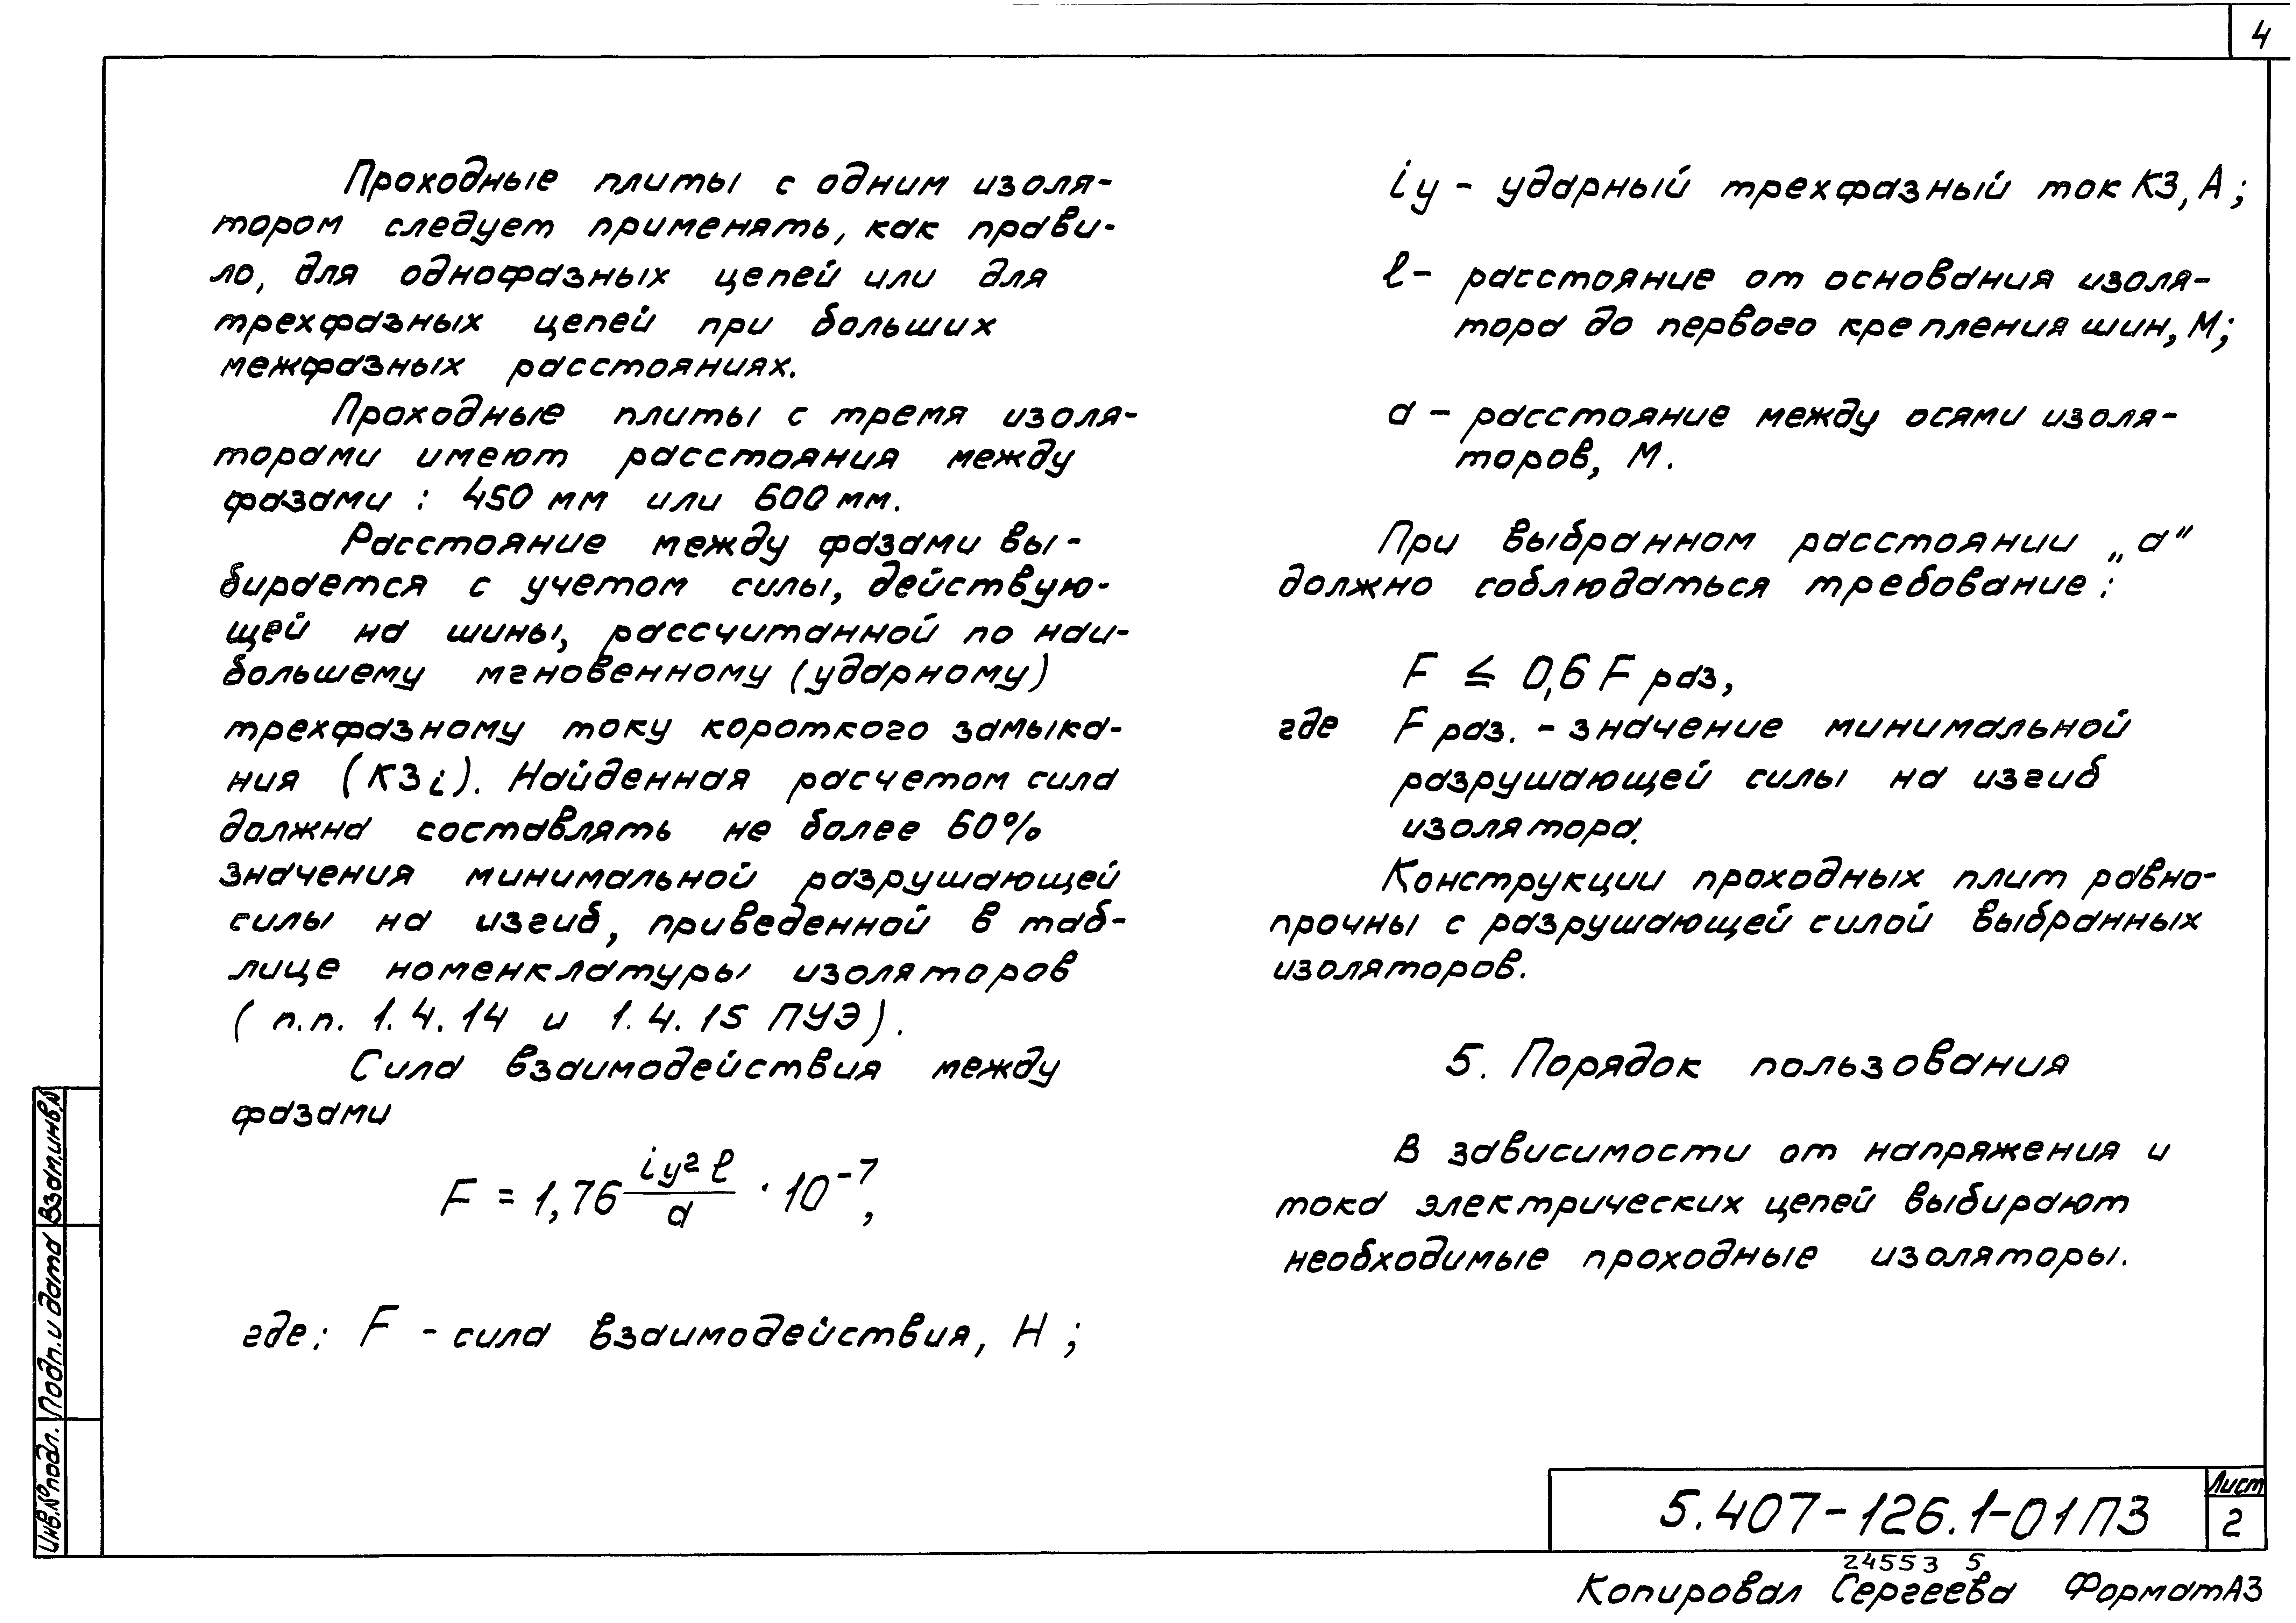 4
Проходные плиты с одним изоля-
тором следует применять, как прави-
ло, для однофазных цепей или для
трехфазных цепей при больших
межфазных расстояниях.
Проходные плиты с тремя изоля-
торами имеют расстояния между
фазами: 450 мм или 600 мм.
Расстояние между фазами вы-
бирается с учетом силы, действую-
щей на шины, рассчитанной по наи-
большему мгновенному (ударному)
трехфазному току короткого замыка-
ния (КЗ i). Найденная расчетом сила
должна составлять не более 60%
значения минимальной разрушающей
силы на изгиб, приведенной в таб-
лице номенклатуры изоляторов
(п.п. 1.4.14 и 1.4.15 ПУЭ).
Сила взаимодействия между
фазами
F = 1,76 iу² ℓ / a · 10⁻⁷,
где: F - сила взаимодействия, Н;
iу - ударный трехфазный ток КЗ, А;
ℓ - расстояние от основания изоля-
тора до первого крепления шин, М;
a - расстояние между осями изоля-
торов, М.
При выбранном расстоянии „а"
должно соблюдаться требование:
F ≤ 0,6 F раз,
где F раз. - значение минимальной
разрушающей силы на изгиб
изолятора.
Конструкции проходных плит равно-
прочны с разрушающей силой выбранных
изоляторов.
5. Порядок пользования
В зависимости от напряжения и
тока электрических цепей выбирают
необходимые проходные изоляторы.
Взам.инв.№
Подп. и дата
Инв.№ подл.
5.407-126.1-01ПЗ
Лист
2
24553 5
Копировал Сергеева Формат А3